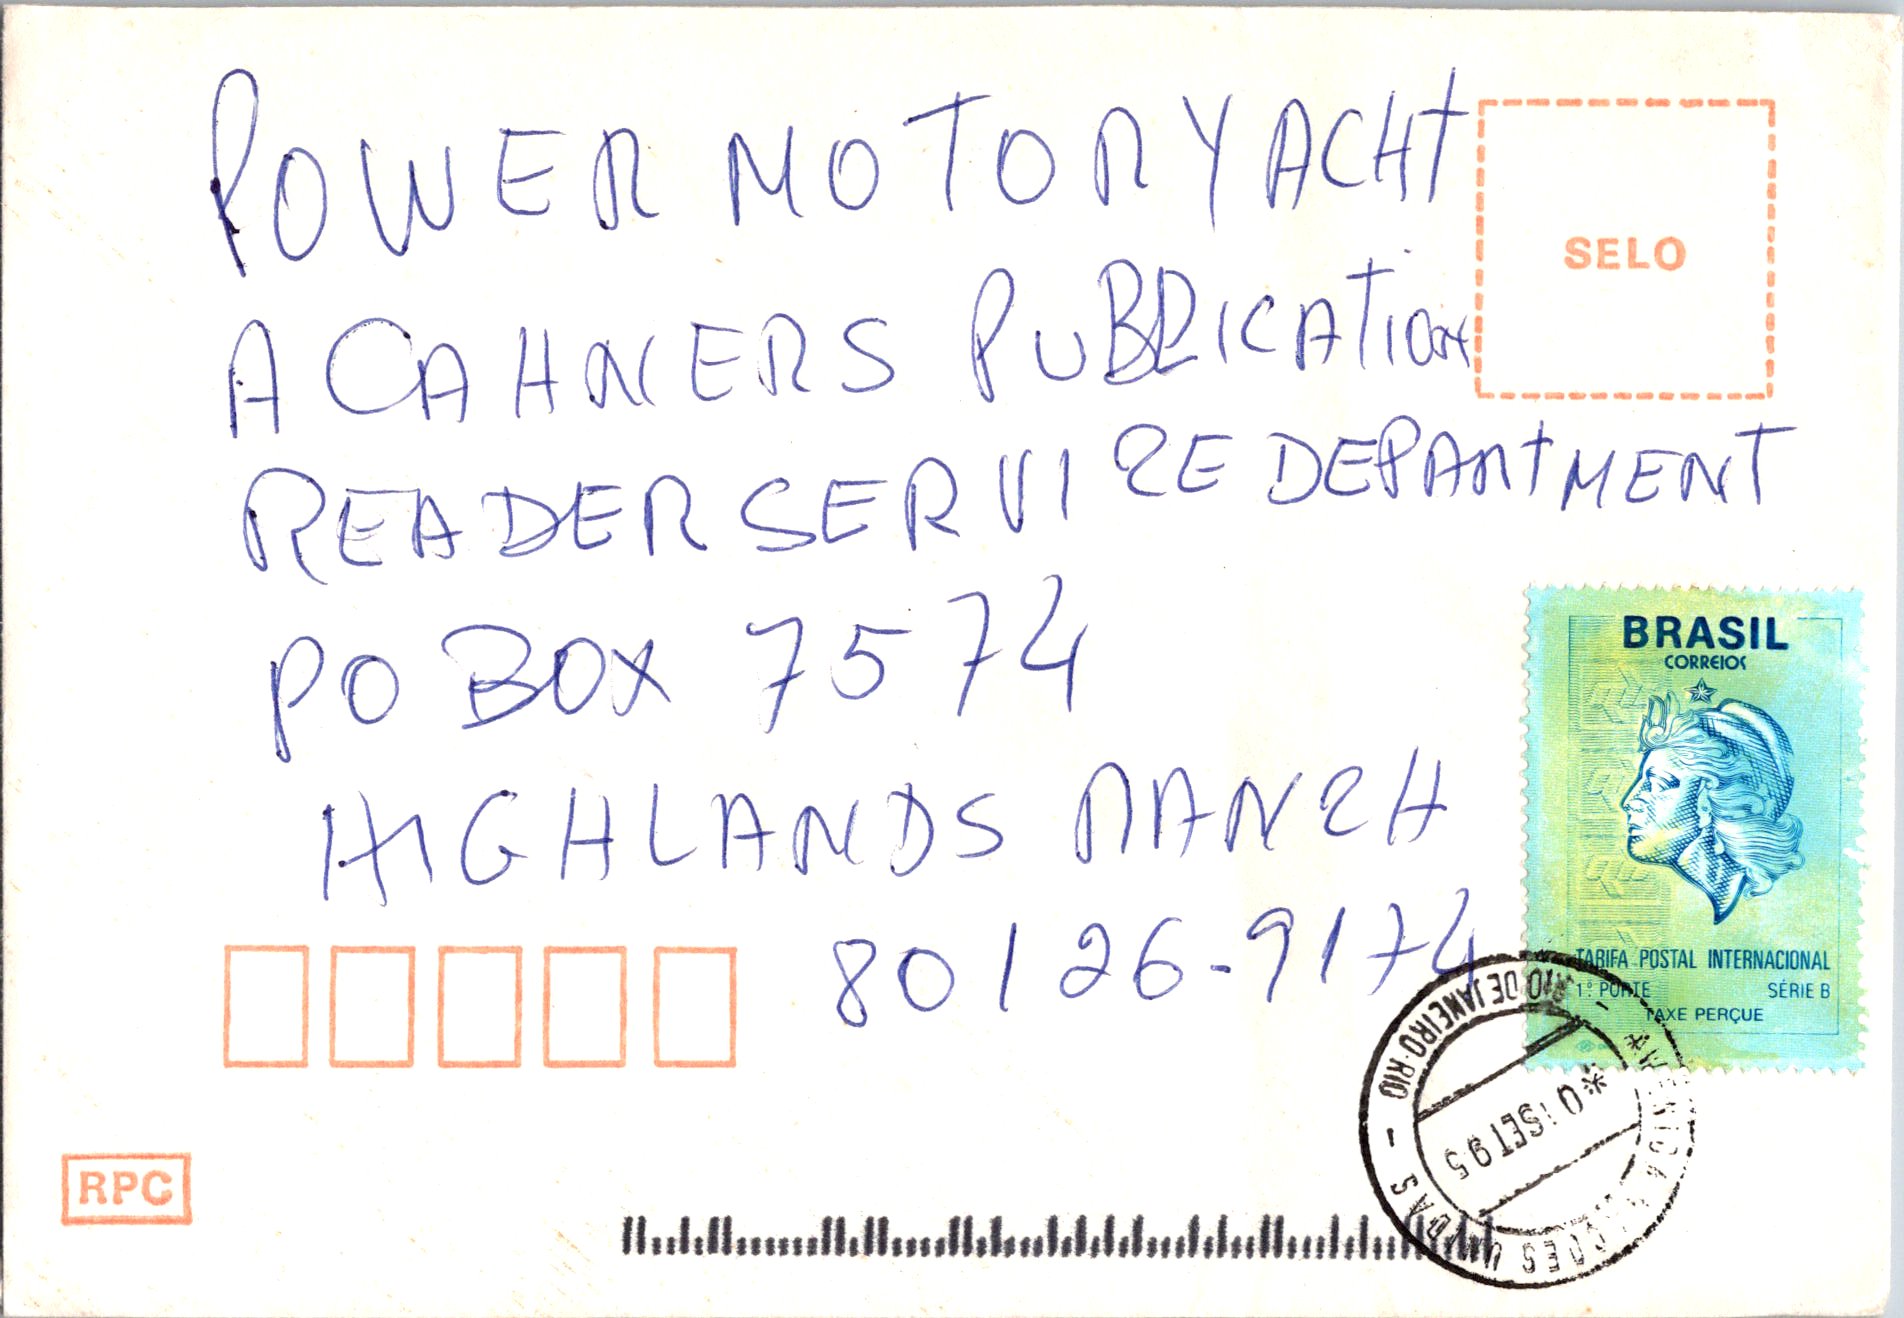 POWER MOTORYACHT
SELO
A CAHNERS PUBLICATION
READER SERVICE DEPARTMENT
PO BOX 7574
HIGHLANDS RANCH
80126-9174
BRASIL
CORREIOS
TARIFA POSTAL INTERNACIONAL
1º PORTE SÉRIE B
TAXE PERÇUE
RIO DE JANEIRO-RIO
*01SET95
NAÇÕES UNIDAS
RPC